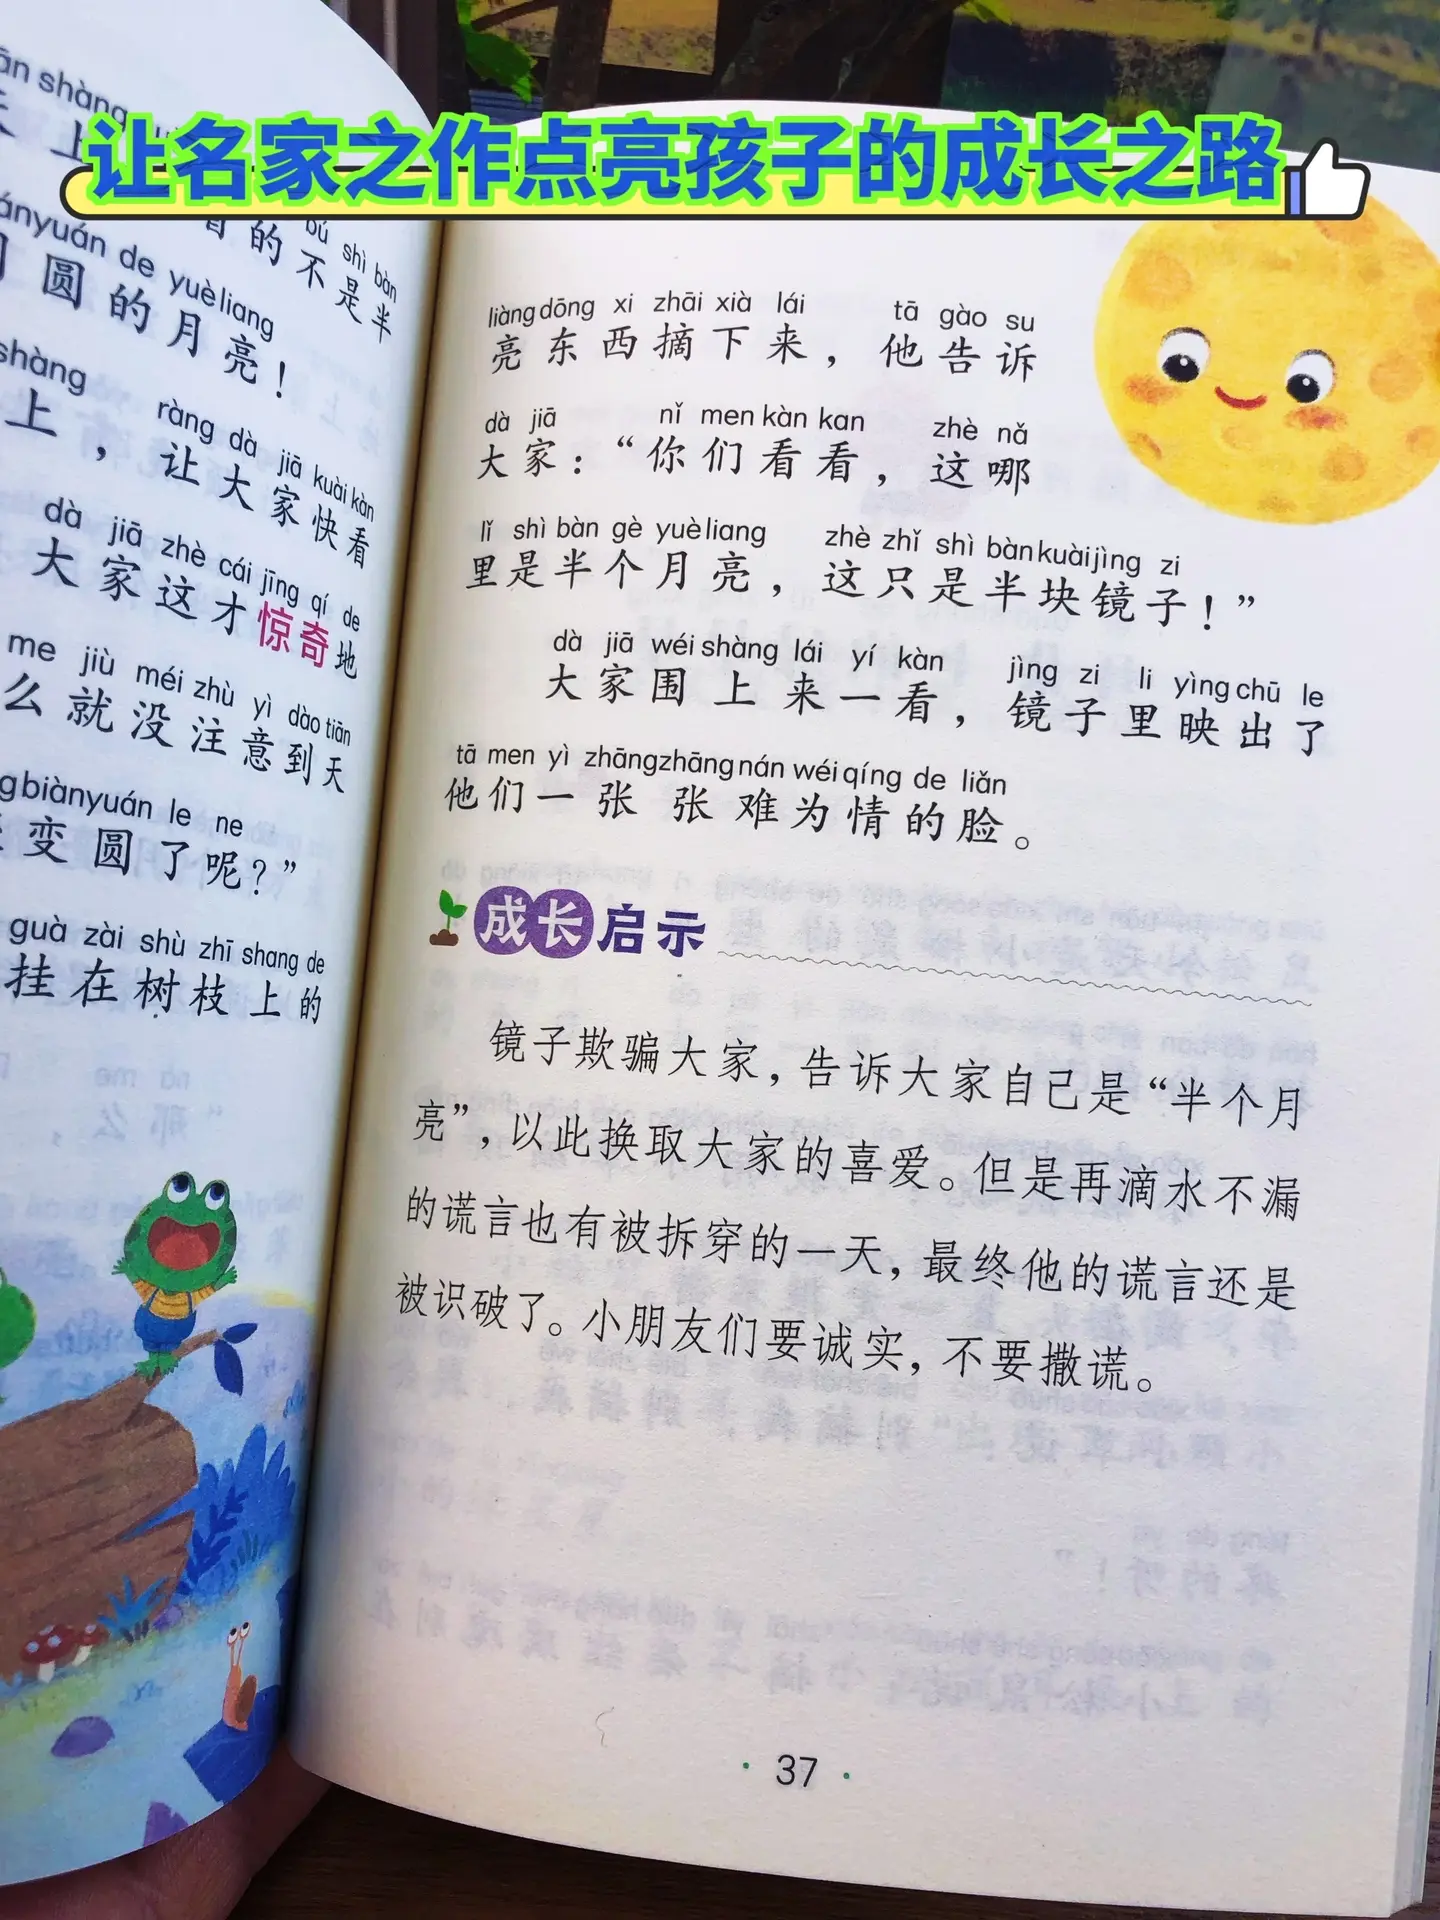 让名家之作点亮孩子的成长之路
ān shàng
上
bú shì bàn
的不是半
ányuán de yuè liang
圆的月亮！
shàng ràng dà jiā kuài kàn
上，让大家快看
dà jiā zhè cái jīng qí de
大家这才惊奇地
me jiù méi zhù yì dào tiān
么就没注意到天
biàn yuán le ne
变圆了呢？”
guà zài shù zhī shang de
挂在树枝上的
liàng dōng xi zhāi xià lái tā gào su
亮东西摘下来，他告诉
dà jiā nǐ men kàn kan zhè nǎ
大家：“你们看看，这哪
lǐ shì bàn gè yuè liang zhè zhǐ shì bàn kuài jìng zi
里是半个月亮，这只是半块镜子！”
dà jiā wéi shàng lái yí kàn jìng zi li yìng chū le
大家围上来一看，镜子里映出了
tā men yì zhāng zhāng nán wéi qíng de liǎn
他们一张张难为情的脸。
成长启示
镜子欺骗大家，告诉大家自己是“半个月
亮”，以此换取大家的喜爱。但是再滴水不漏
的谎言也有被拆穿的一天，最终他的谎言还是
被识破了。小朋友们要诚实，不要撒谎。
· 37 ·